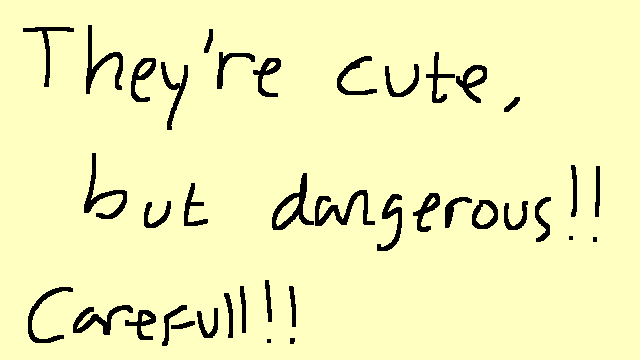 They're cute,
but dangerous!!
Carefull!!